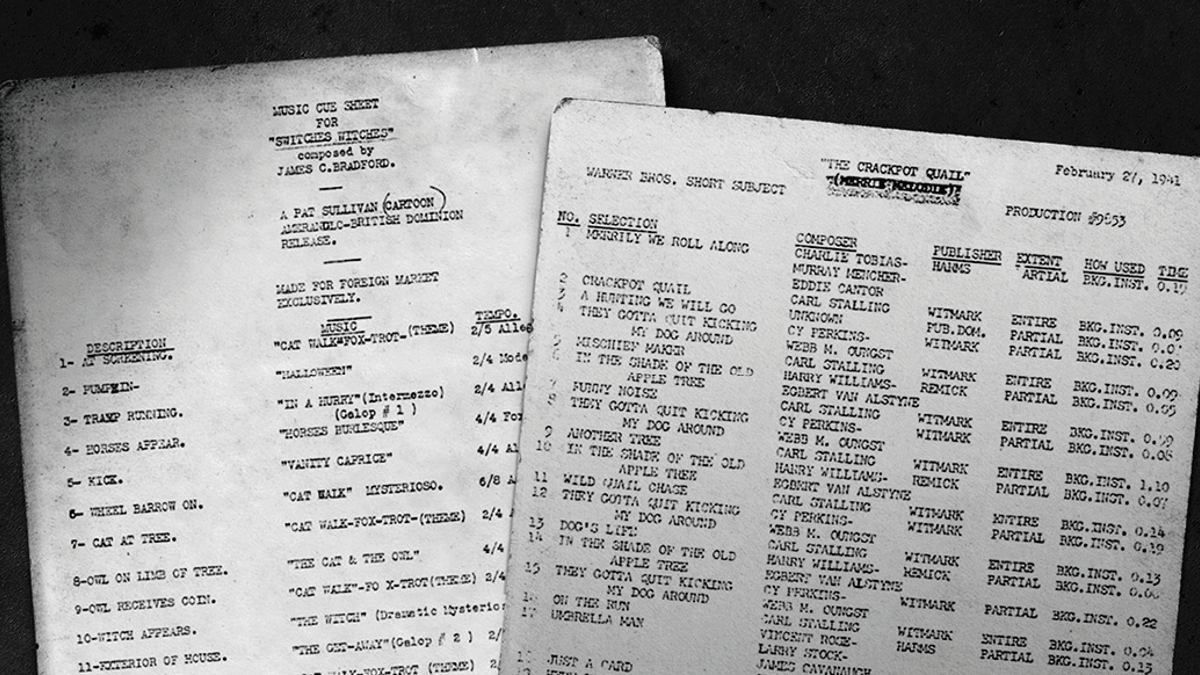 MUSIC CUE SHEET
FOR
"SWITCHES WITCHES"
composed by
JAMES C.BRADFORD.
A PAT SULLIVAN (CARTOON)
AMERANGLO-BRITISH DOMINION
RELEASE.
MADE FOR FOREIGN MARKET
EXCLUSIVELY.
DESCRIPTION MUSIC TEMPO.
1- AT SCREENING. "CAT WALK"FOX-TROT-(THEME) 2/5 Alleg
2- PUMPKIN- "HALLOWEEN" 2/4 Mode
3- TRAMP RUNNING. "IN A HURRY"(Intermezzo) 2/4 All
(Galop # 1 )
4- HORSES APPEAR. "HORSES BURLESQUE" 4/4 Fox
5- KICK. "VANITY CAPRICE" 4/4 Al
6- WHEEL BARROW ON. "CAT WALK" MYSTERIOSO. 6/8 A
7- CAT AT TREE. "CAT WALK-FOX-TROT-(THEME) 2/4
8-OWL ON LIMB OF TREE. "THE CAT & THE OWL" 4/4
9-OWL RECEIVES COIN. "CAT WALK"-FO X-TROT(THEME) 2/4
10-WITCH APPEARS. "THE WITCH" (Dramatic Mysterio
11-EXTERIOR OF HOUSE. "THE GET-AWAY"(Galop # 2 ) 2/
WALK-FOX-TROT (THEME) 2/
"THE CRACKPOT QUAIL" February 27, 1941
WARNER BROS. SHORT SUBJECT (MERRIE MELODIE)
PRODUCTION #9853
NO. SELECTION COMPOSER PUBLISHER EXTENT HOW USED TIME
1 MERRILY WE ROLL ALONG CHARLIE TOBIAS- HARMS PARTIAL BKG.INST. 0.15
MURRAY MENCHER-
EDDIE CANTOR
2 CRACKPOT QUAIL CARL STALLING WITMARK ENTIRE BKG.INST. 0.09
3 A HUNTING WE WILL GO UNKNOWN PUB.DOM. PARTIAL BKG.INST.
4 THEY GOTTA QUIT KICKING CY PERKINS- WITMARK PARTIAL BKG.INST. 0.20
MY DOG AROUND WEBB M. OUNGST
5 MISCHIEF MAKER CARL STALLING WITMARK ENTIRE BKG.INST. 0.09
6 IN THE SHADE OF THE OLD HARRY WILLIAMS- REMICK PARTIAL BKG.INST. 0.05
APPLE TREE EGBERT VAN ALSTYNE
7 FUNNY NOISE CARL STALLING WITMARK ENTIRE BKG.INST.
8 THEY GOTTA QUIT KICKING CY PERKINS- WITMARK PARTIAL BKG.INST. 0.08
MY DOG AROUND WEBB M. OUNGST
9 ANOTHER TREE CARL STALLING WITMARK ENTIRE BKG.INST. 1.10
10 IN THE SHADE OF THE OLD HARRY WILLIAMS- REMICK PARTIAL BKG.INST. 0.07
APPLE TREE EGBERT VAN ALSTYNE
11 WILD QUAIL CHASE CARL STALLING WITMARK ENTIRE BKG.INST. 0.14
12 THEY GOTTA QUIT KICKING CY PERKINS- WITMARK PARTIAL BKG.INST. 0.19
MY DOG AROUND WEBB M. OUNGST
13 DOG'S LIFE CARL STALLING WITMARK ENTIRE BKG.INST. 0.13
14 IN THE SHADE OF THE OLD HARRY WILLIAMS- REMICK PARTIAL BKG.INST.
APPLE TREE EGBERT VAN ALSTYNE
15 THEY GOTTA QUIT KICKING CY PERKINS- WITMARK PARTIAL BKG.INST. 0.22
MY DOG AROUND WEBB M. OUNGST
16 ON THE RUN CARL STALLING WITMARK ENTIRE BKG.INST. 0.04
17 UMBRELLA MAN VINCENT ROSE- HARMS PARTIAL BKG.INST. 0.15
LARRY STOCK-
JAMES CAVANAUGH
JUST A CARD